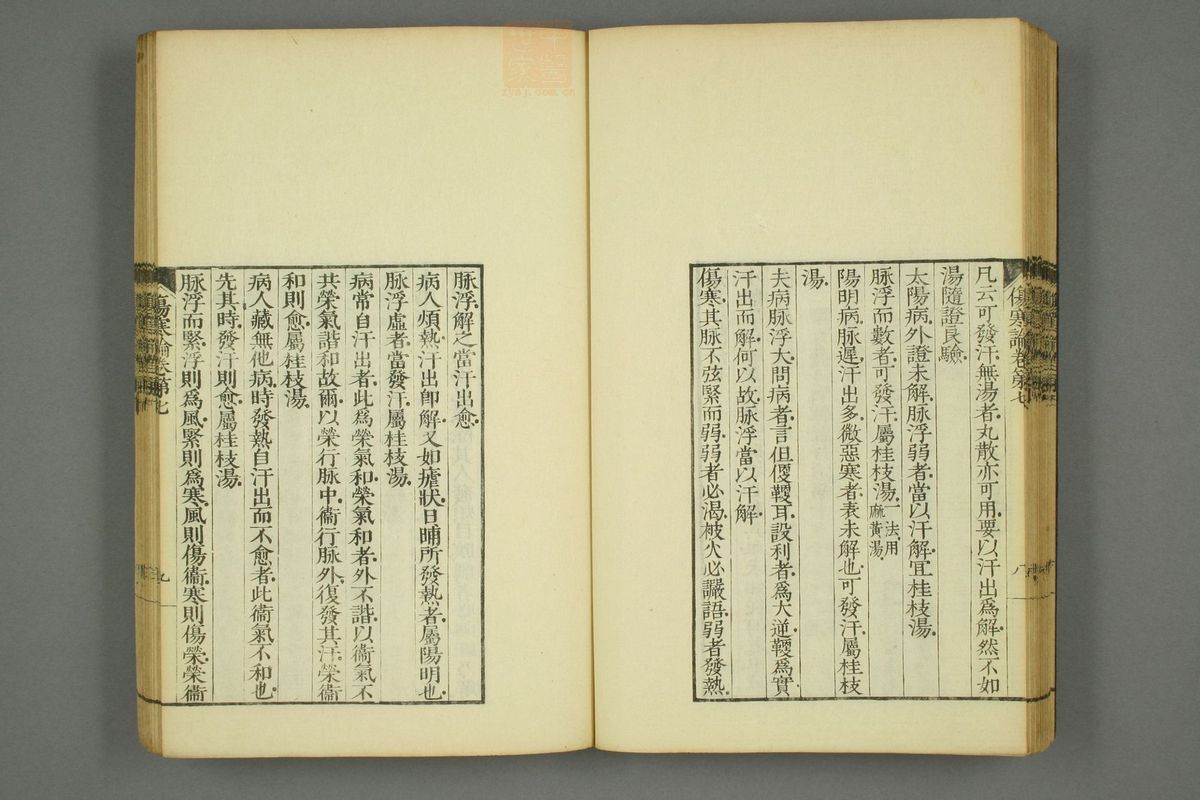 傷寒論卷第七
八
凡云可發汗無湯者。丸散亦可用。要以汗出爲解。然不如
湯隨證良驗。
太陽病。外證未解。脉浮弱者。當以汗解。宜桂枝湯。
脉浮而數者。可發汗。屬桂枝湯。一法。用麻黃湯。
陽明病。脉遲。汗出多。微惡寒者。表未解也。可發汗。屬桂枝
湯。
夫病脉浮大。問病者。言但便鞕耳。設利者。爲大逆。鞕爲實。
汗出而解。何以故。脉浮當以汗解。
傷寒。其脉不弦緊而弱。弱者必渴。被火必讝語。弱者發熱。
脉浮。解之當汗出愈。
病人煩熱。汗出卽解。又如瘧狀。日晡所發熱者。屬陽明也。
脉浮虛者。當發汗。屬桂枝湯。
病常自汗出者。此爲榮氣和。榮氣和者。外不諧。以衞氣不
共榮氣諧和故爾。以榮行脉中。衞行脉外。復發其汗。榮衞
和則愈。屬桂枝湯。
病人藏無他病。時發熱自汗出而不愈者。此衞氣不和也。
先其時。發汗則愈。屬桂枝湯。
脉浮而緊。浮則爲風。緊則爲寒。風則傷衞。寒則傷榮。榮衞
傷寒論卷第七
zysj.com.cn